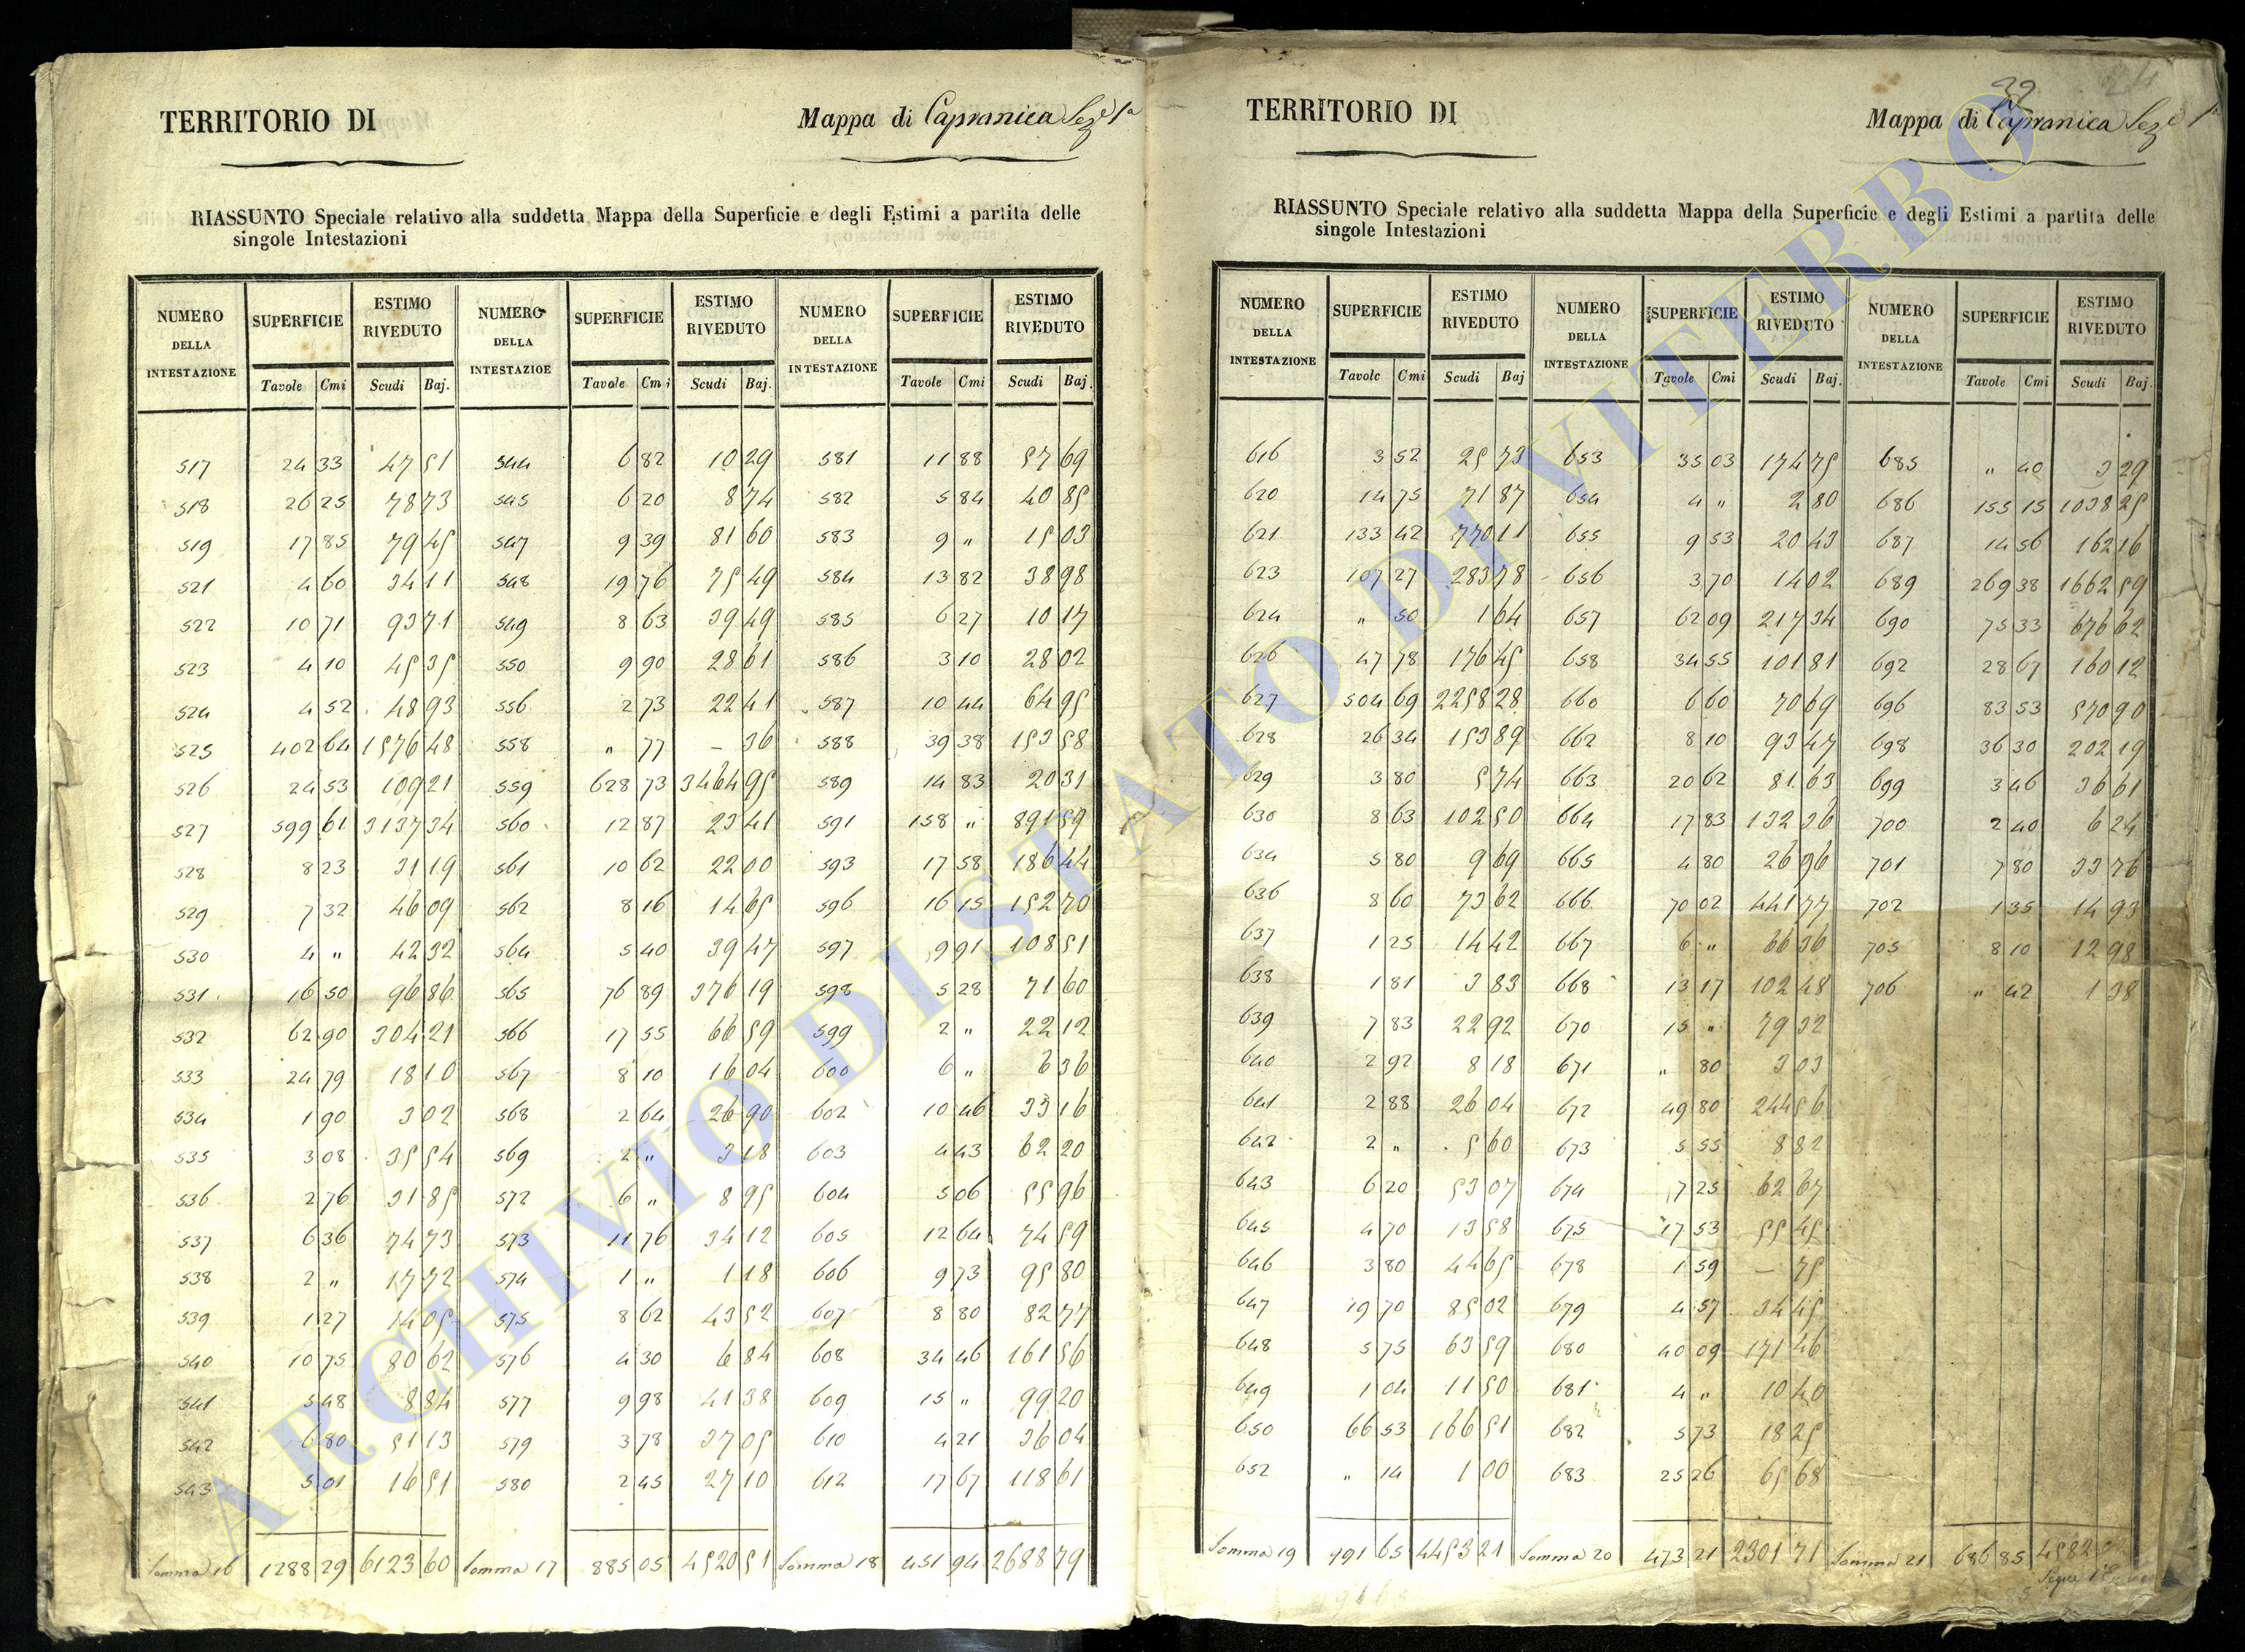 TERRITORIO DI Mappa di Capranica Seze 1a
RIASSUNTO Speciale relativo alla suddetta Mappa della Superficie e degli Estimi a partita delle
singole Intestazioni
NUMERO DELLA INTESTAZIONE SUPERFICIE ESTIMO RIVEDUTO NUMERO DELLA INTESTAZIOE SUPERFICIE ESTIMO RIVEDUTO NUMERO DELLA INTESTAZIONE SUPERFICIE ESTIMO RIVEDUTO
Tavole Cmi Scudi Baj. Tavole Cmi Scudi Baj. Tavole Cmi Scudi Baj.
517 24 33 47 51 544 6 82 10 29 581 11 88 57 69
518 26 25 78 73 545 6 20 8 74 582 5 84 40 85
519 17 85 79 45 547 9 39 81 60 583 9 " 15 03
521 4 60 34 11 548 19 76 75 49 584 13 82 38 98
522 10 71 93 71 549 8 63 39 49 585 6 27 10 17
523 4 10 45 35 550 9 90 28 61 586 3 10 28 02
524 4 52 48 93 556 2 73 22 41 587 10 44 64 95
525 402 64 1576 48 558 " 77 – 36 588 39 38 153 58
526 24 53 109 21 559 628 73 3464 95 589 14 83 20 31
527 599 61 3137 34 560 12 87 23 41 591 158 " 891 59
528 8 23 31 19 561 10 62 22 00 593 17 58 186 44
529 7 32 46 09 562 8 16 14 65 596 16 15 152 70
530 4 " 42 32 564 5 40 39 47 597 9 91 108 51
531 16 50 96 86 565 76 89 376 19 598 5 28 71 60
532 62 90 304 21 566 17 55 66 59 599 2 " 22 12
533 24 79 18 10 567 8 10 16 04 600 6 " 6 36
534 1 90 3 02 568 2 64 26 90 602 10 46 33 16
535 3 08 35 54 569 2 " 3 18 603 4 43 62 20
536 2 76 31 85 572 6 " 8 95 604 5 06 55 96
537 6 36 74 73 573 11 76 34 12 605 12 64 74 59
538 2 " 17 72 574 1 " 1 18 606 9 73 95 80
539 1 27 14 05 575 8 62 43 52 607 8 80 82 77
540 10 75 80 62 576 4 30 6 84 608 34 46 161 56
541 5 48 8 84 577 9 98 41 38 609 15 " 99 20
542 6 80 51 13 579 3 78 37 05 610 4 21 36 04
543 5 01 16 51 580 2 45 27 10 612 17 67 118 61
Somma 16 1288 29 6123 60 Somma 17 885 05 4520 51 Somma 18 451 94 2688 79
39 24
TERRITORIO DI Mappa di Capranica Seze 1a
RIASSUNTO Speciale relativo alla suddetta Mappa della Superficie e degli Estimi a partita delle
singole Intestazioni
NUMERO DELLA INTESTAZIONE SUPERFICIE ESTIMO RIVEDUTO NUMERO DELLA INTESTAZIONE SUPERFICIE ESTIMO RIVEDUTO NUMERO DELLA INTESTAZIONE SUPERFICIE ESTIMO RIVEDUTO
Tavole Cmi Scudi Baj Tavole Cmi Scudi Baj. Tavole Cmi Scudi Baj.
616 3 52 25 73 653 35 03 174 75 685 " 40 3 29
620 14 75 71 87 654 4 " 2 80 686 155 15 1038 25
621 133 42 770 11 655 9 53 20 43 687 14 56 162 16
623 107 27 283 78 656 3 70 14 02 689 269 38 1662 59
624 " 50 1 64 657 62 09 217 34 690 75 33 676 62
626 47 78 176 45 658 34 55 101 81 692 28 67 160 12
627 504 69 2258 28 660 6 60 70 69 696 83 53 570 90
628 26 34 153 89 662 8 10 93 47 698 36 30 202 19
629 3 80 5 74 663 20 62 81 63 699 3 46 36 61
630 8 63 102 50 664 17 83 132 36 700 2 40 6 24
634 5 80 9 69 665 4 80 26 96 701 7 80 33 76
636 8 60 73 62 666 70 02 441 77 702 1 35 14 93
637 1 25 14 42 667 6 " 66 36 705 8 10 12 98
638 1 81 3 83 668 13 17 102 48 706 " 42 1 38
639 7 83 22 92 670 15 " 79 32
640 2 92 8 18 671 " 80 3 03
641 2 88 26 04 672 49 80 244 56
642 2 " 5 60 673 5 55 8 82
643 6 20 53 07 674 7 25 62 67
645 4 70 13 58 675 17 53 55 45
646 3 80 44 65 678 1 59 – 75
647 19 70 85 02 679 4 57 34 45
648 5 75 63 59 680 40 09 171 46
649 1 04 11 50 681 4 " 10 40
650 66 53 166 51 682 5 73 18 25
652 " 14 1 00 683 25 26 65 68
Somma 19 991 65 4453 21 Somma 20 473 21 2301 71 Somma 21 686 85 4582
Segue
ARCHIVIO DI STATO DI VITERBO